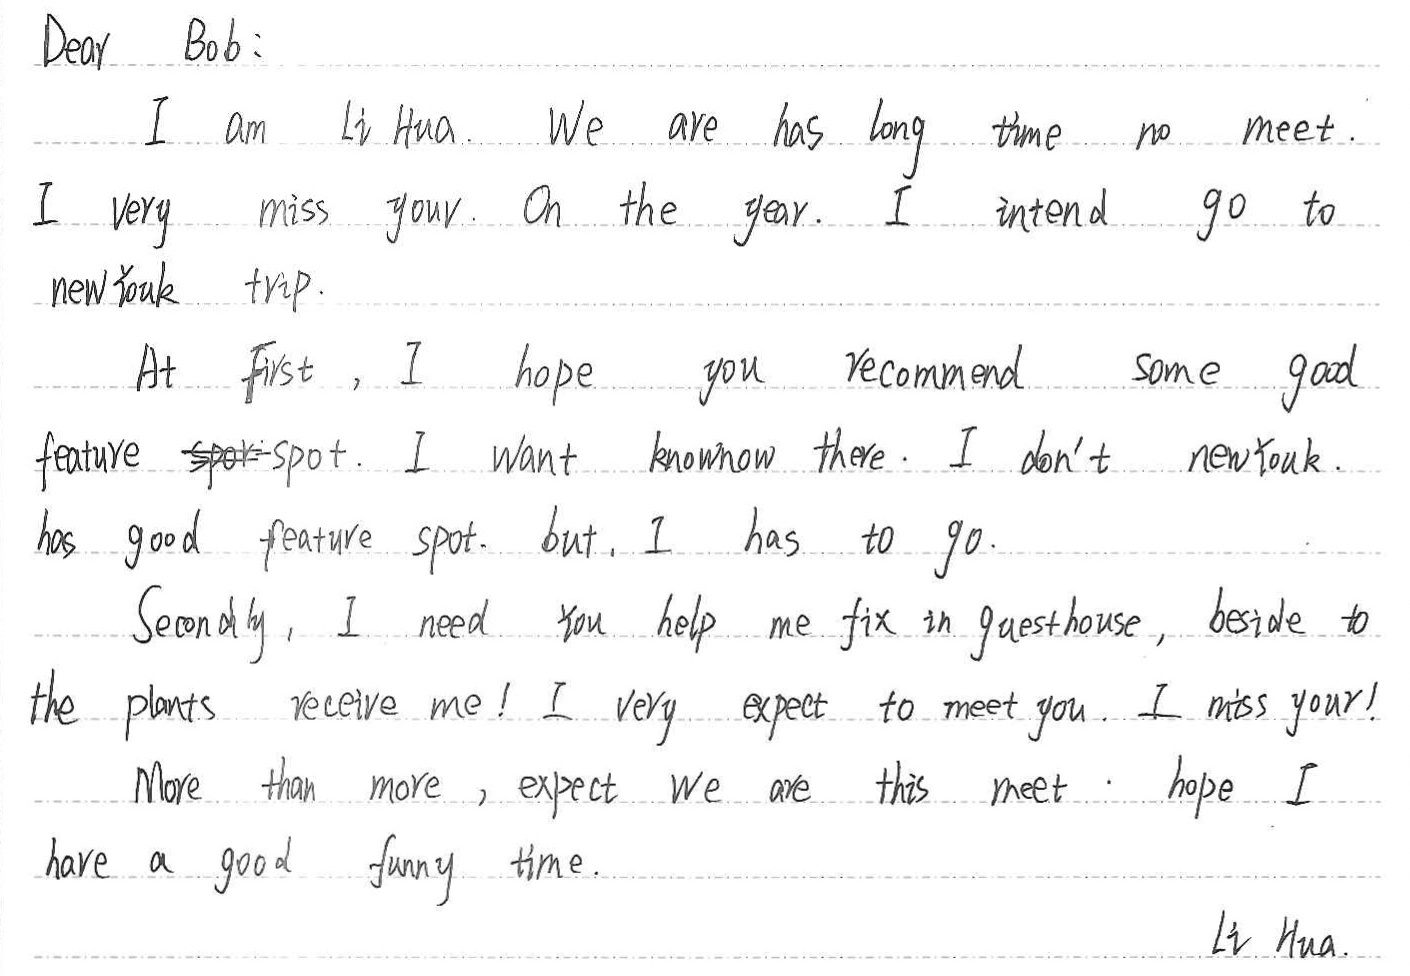 Dear Bob:
I am Li Hua. We are has long time no meet.
I very miss your. On the year. I intend go to
newYouk trip.
At first, I hope you recommend some good
feature spot. I want knownow there. I don't newYouk.
has good feature spot. but. I has to go.
Secondly, I need You help me fix in guesthouse, beside to
the plants receive me! I very expect to meet you. I miss your!
More than more, expect We are this meet. hope I
have a good funny time.
Li Hua.